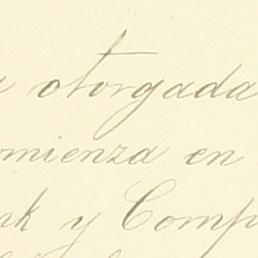 otorgada
mienza en
nk y Comp